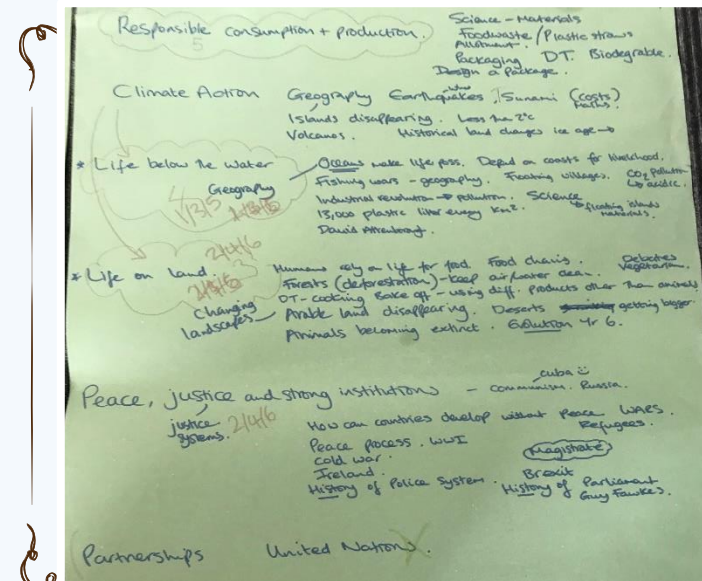 Responsible consumption + production.
5
Science - Materials
Foodwaste / Plastic straws
Allotment.
Packaging DT. Biodegradable.
Design a package.
Climate Action
Geography Earthquakes, Sunami (costs)
Maths
Islands disappearing. Less than 2°c
Volcanos. Historical land changes ice age →
* Life below the water
Geography
Oceans make life poss. Depend on coasts for livelihood.
Fishing wars - geography. Floating villages. CO2 pollution
↳ acidic.
Industrial revolution → pollution. Science
↳ floating islands
materials.
13,000 plastic liter every km2.
David Attenborough.
2/4/6
* Life on land.
Changing
landscapes
Humans rely on life for food. Food chains. Debates
Vegetarian.
Forests (deforestation) - keep air/water clean.
DT - cooking Bake off - using diff. products other than animals
Arable land disappearing. Deserts getting bigger.
Animals becoming extinct. Evolution Yr 6.
Peace, justice and strong institutions - communism. Russia.
Cuba
justice
systems. 2/4/6
How can countries develop without peace WARS.
Refugees.
Peace process. WWI
Cold war.
Ireland.
History of Police System.
Magistrate
Brexit
History of Parliament
Guy Fawkes.
Partnerships United Nations.